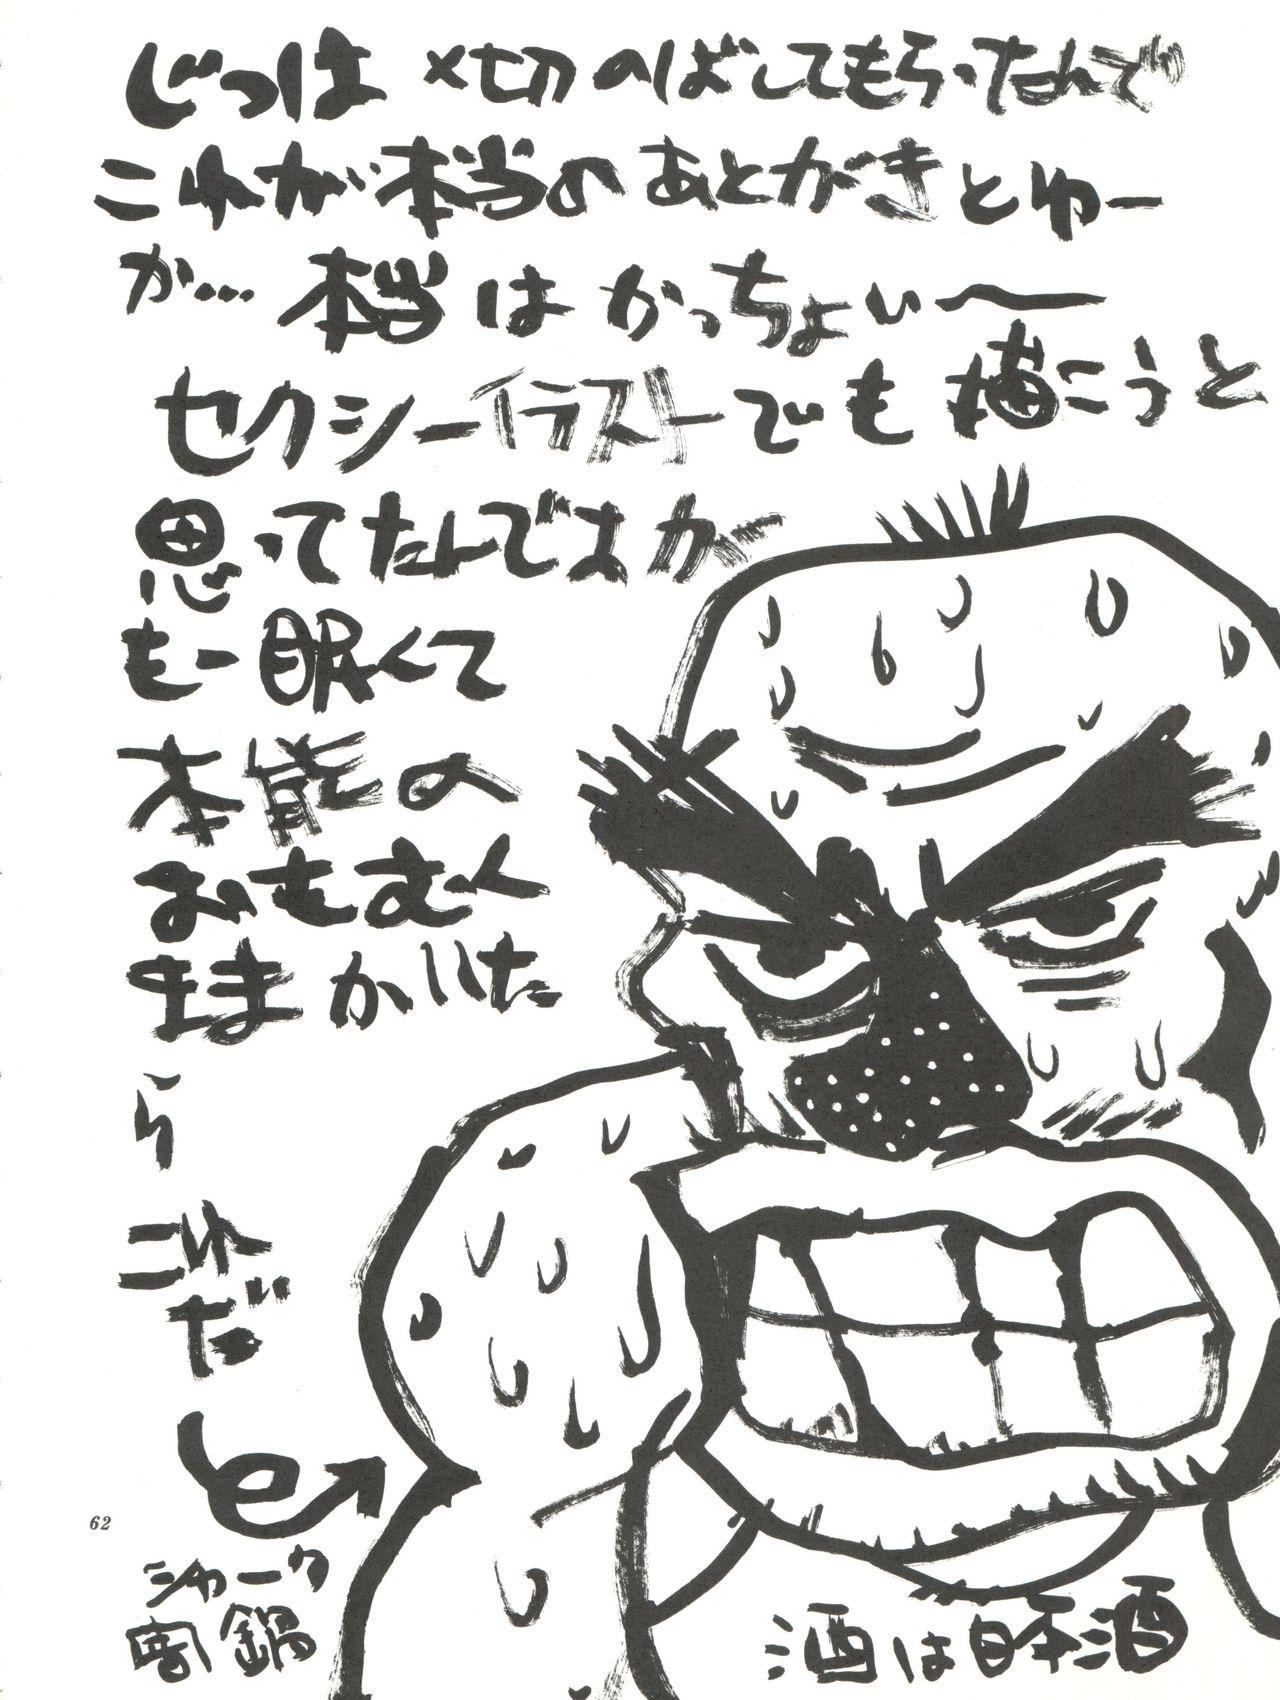 じつは〆切のばしてもらったんで
これが本当のあとがきとゆー
か…本当はかっちょいー
セクシーイラストでも描こうと
思ってたんですが
もー眠くて
本能の
おもむく
ままかいた
ら
これ
だ
62
シャーク
鍋
酒は日本酒